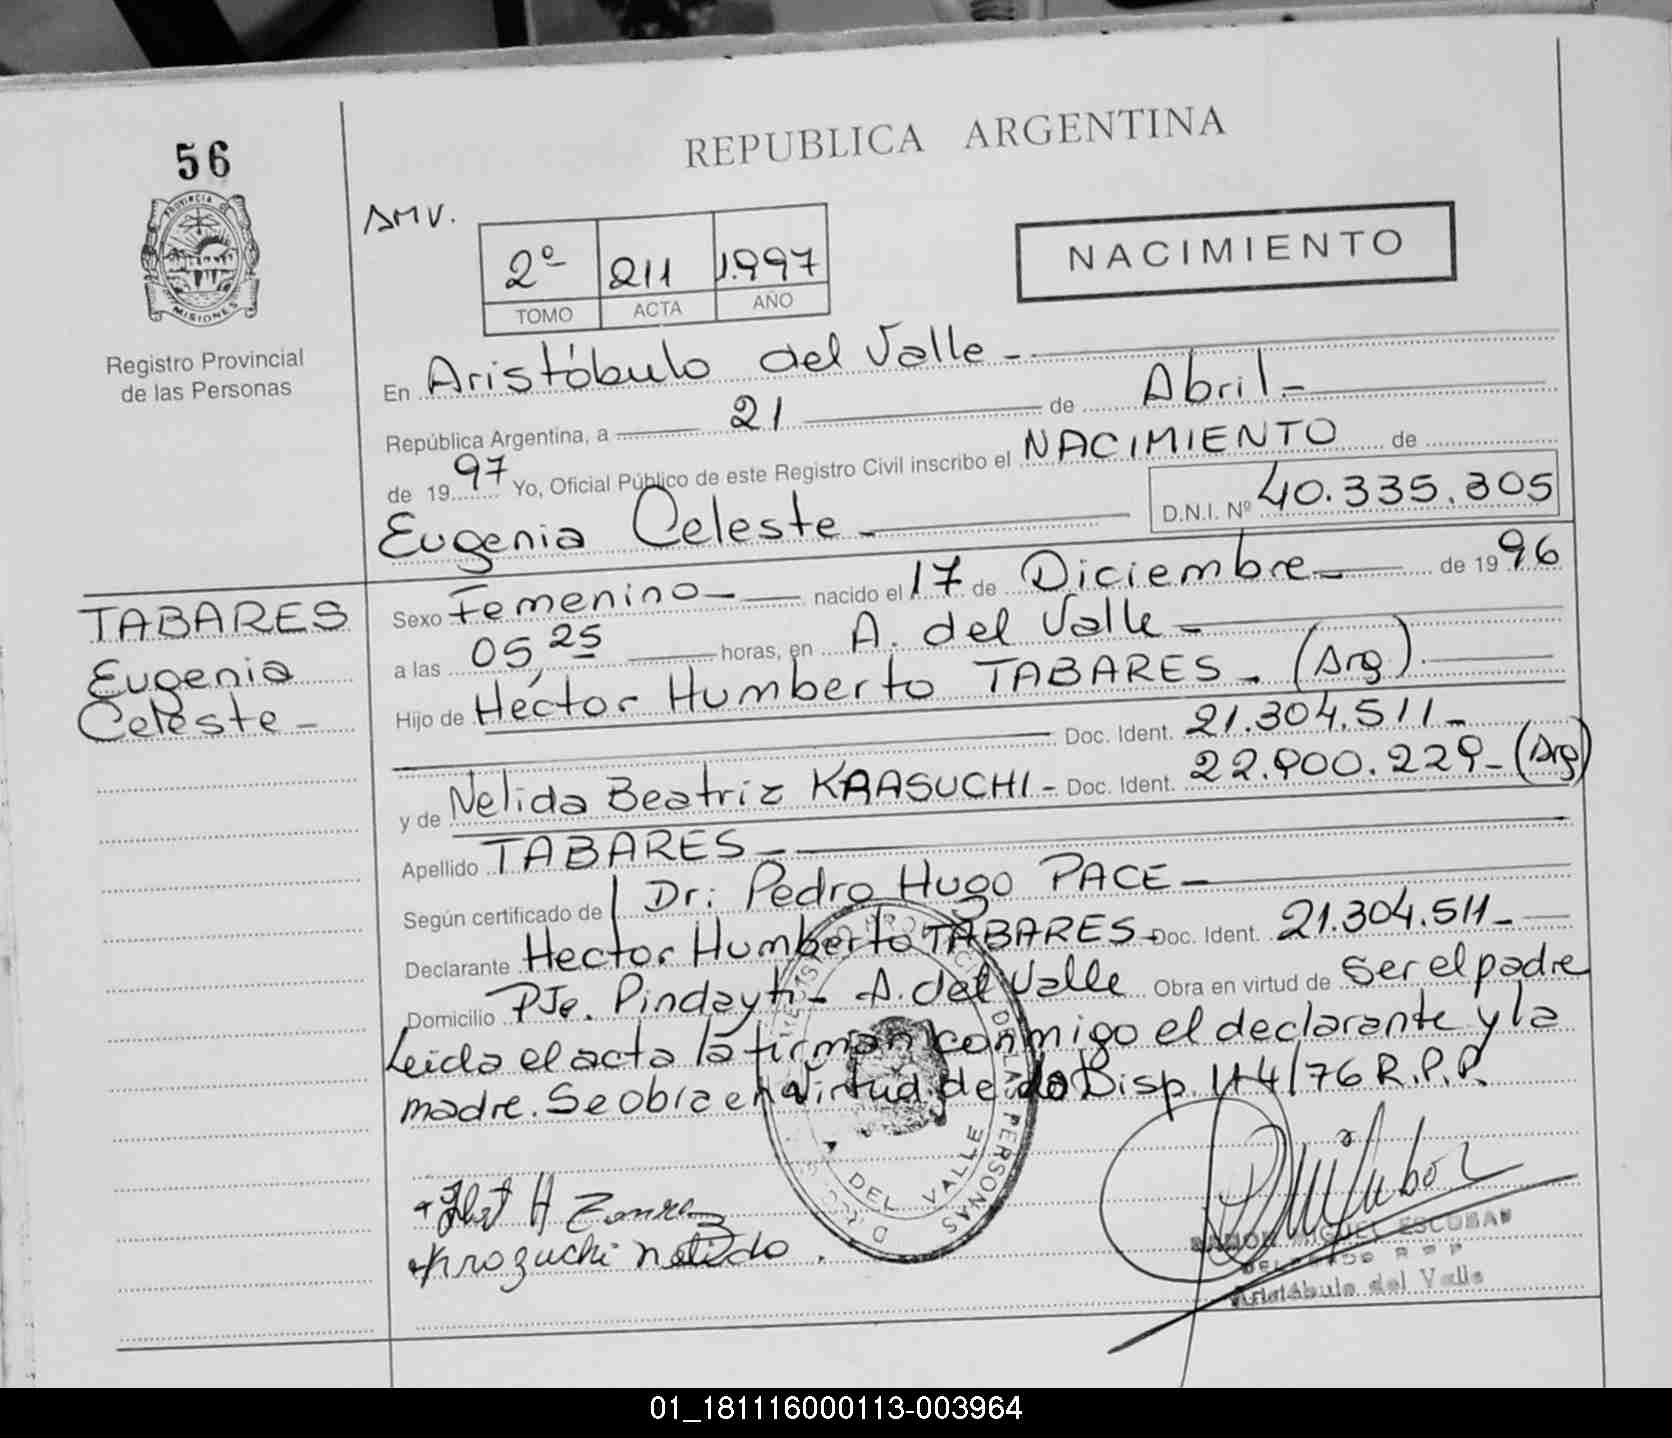 56
REPUBLICA ARGENTINA
PROVINCIA DE MISIONES
Registro Provincial
de las Personas
AMV.
2º 211 1.997
TOMO ACTA AÑO
NACIMIENTO
En Aristóbulo del Valle -
República Argentina, a 21 de Abril -
de 1997 Yo, Oficial Público de este Registro Civil inscribo el NACIMIENTO de
Eugenia Celeste - D.N.I. Nº 40.335.305
TABARES
Eugenia
Celeste -
Sexo Femenino - nacido el 17 de Diciembre - de 1996
a las 05,25 horas, en A. del Valle -
Hijo de Héctor Humberto TABARES - (Arg).
Doc. Ident. 21.304.511 -
y de Nelida Beatriz KRASUCHI - Doc. Ident. 22.900.229 - (Arg)
Apellido TABARES -
Según certificado de Dr: Pedro Hugo PACE -
Declarante Hector Humberto TABARES - Doc. Ident. 21.304.511 -
Domicilio PJe. Pindayti - A. del Valle Obra en virtud de Ser el padre
Leida el acta la firman conmigo el declarante y la
madre. Se obra en virtud de la Disp. 114/76 R.P.P.
DEL VALLE
RAMON MIGUEL ESCOBAR
Aristóbulo del Valle
01_181116000113-003964